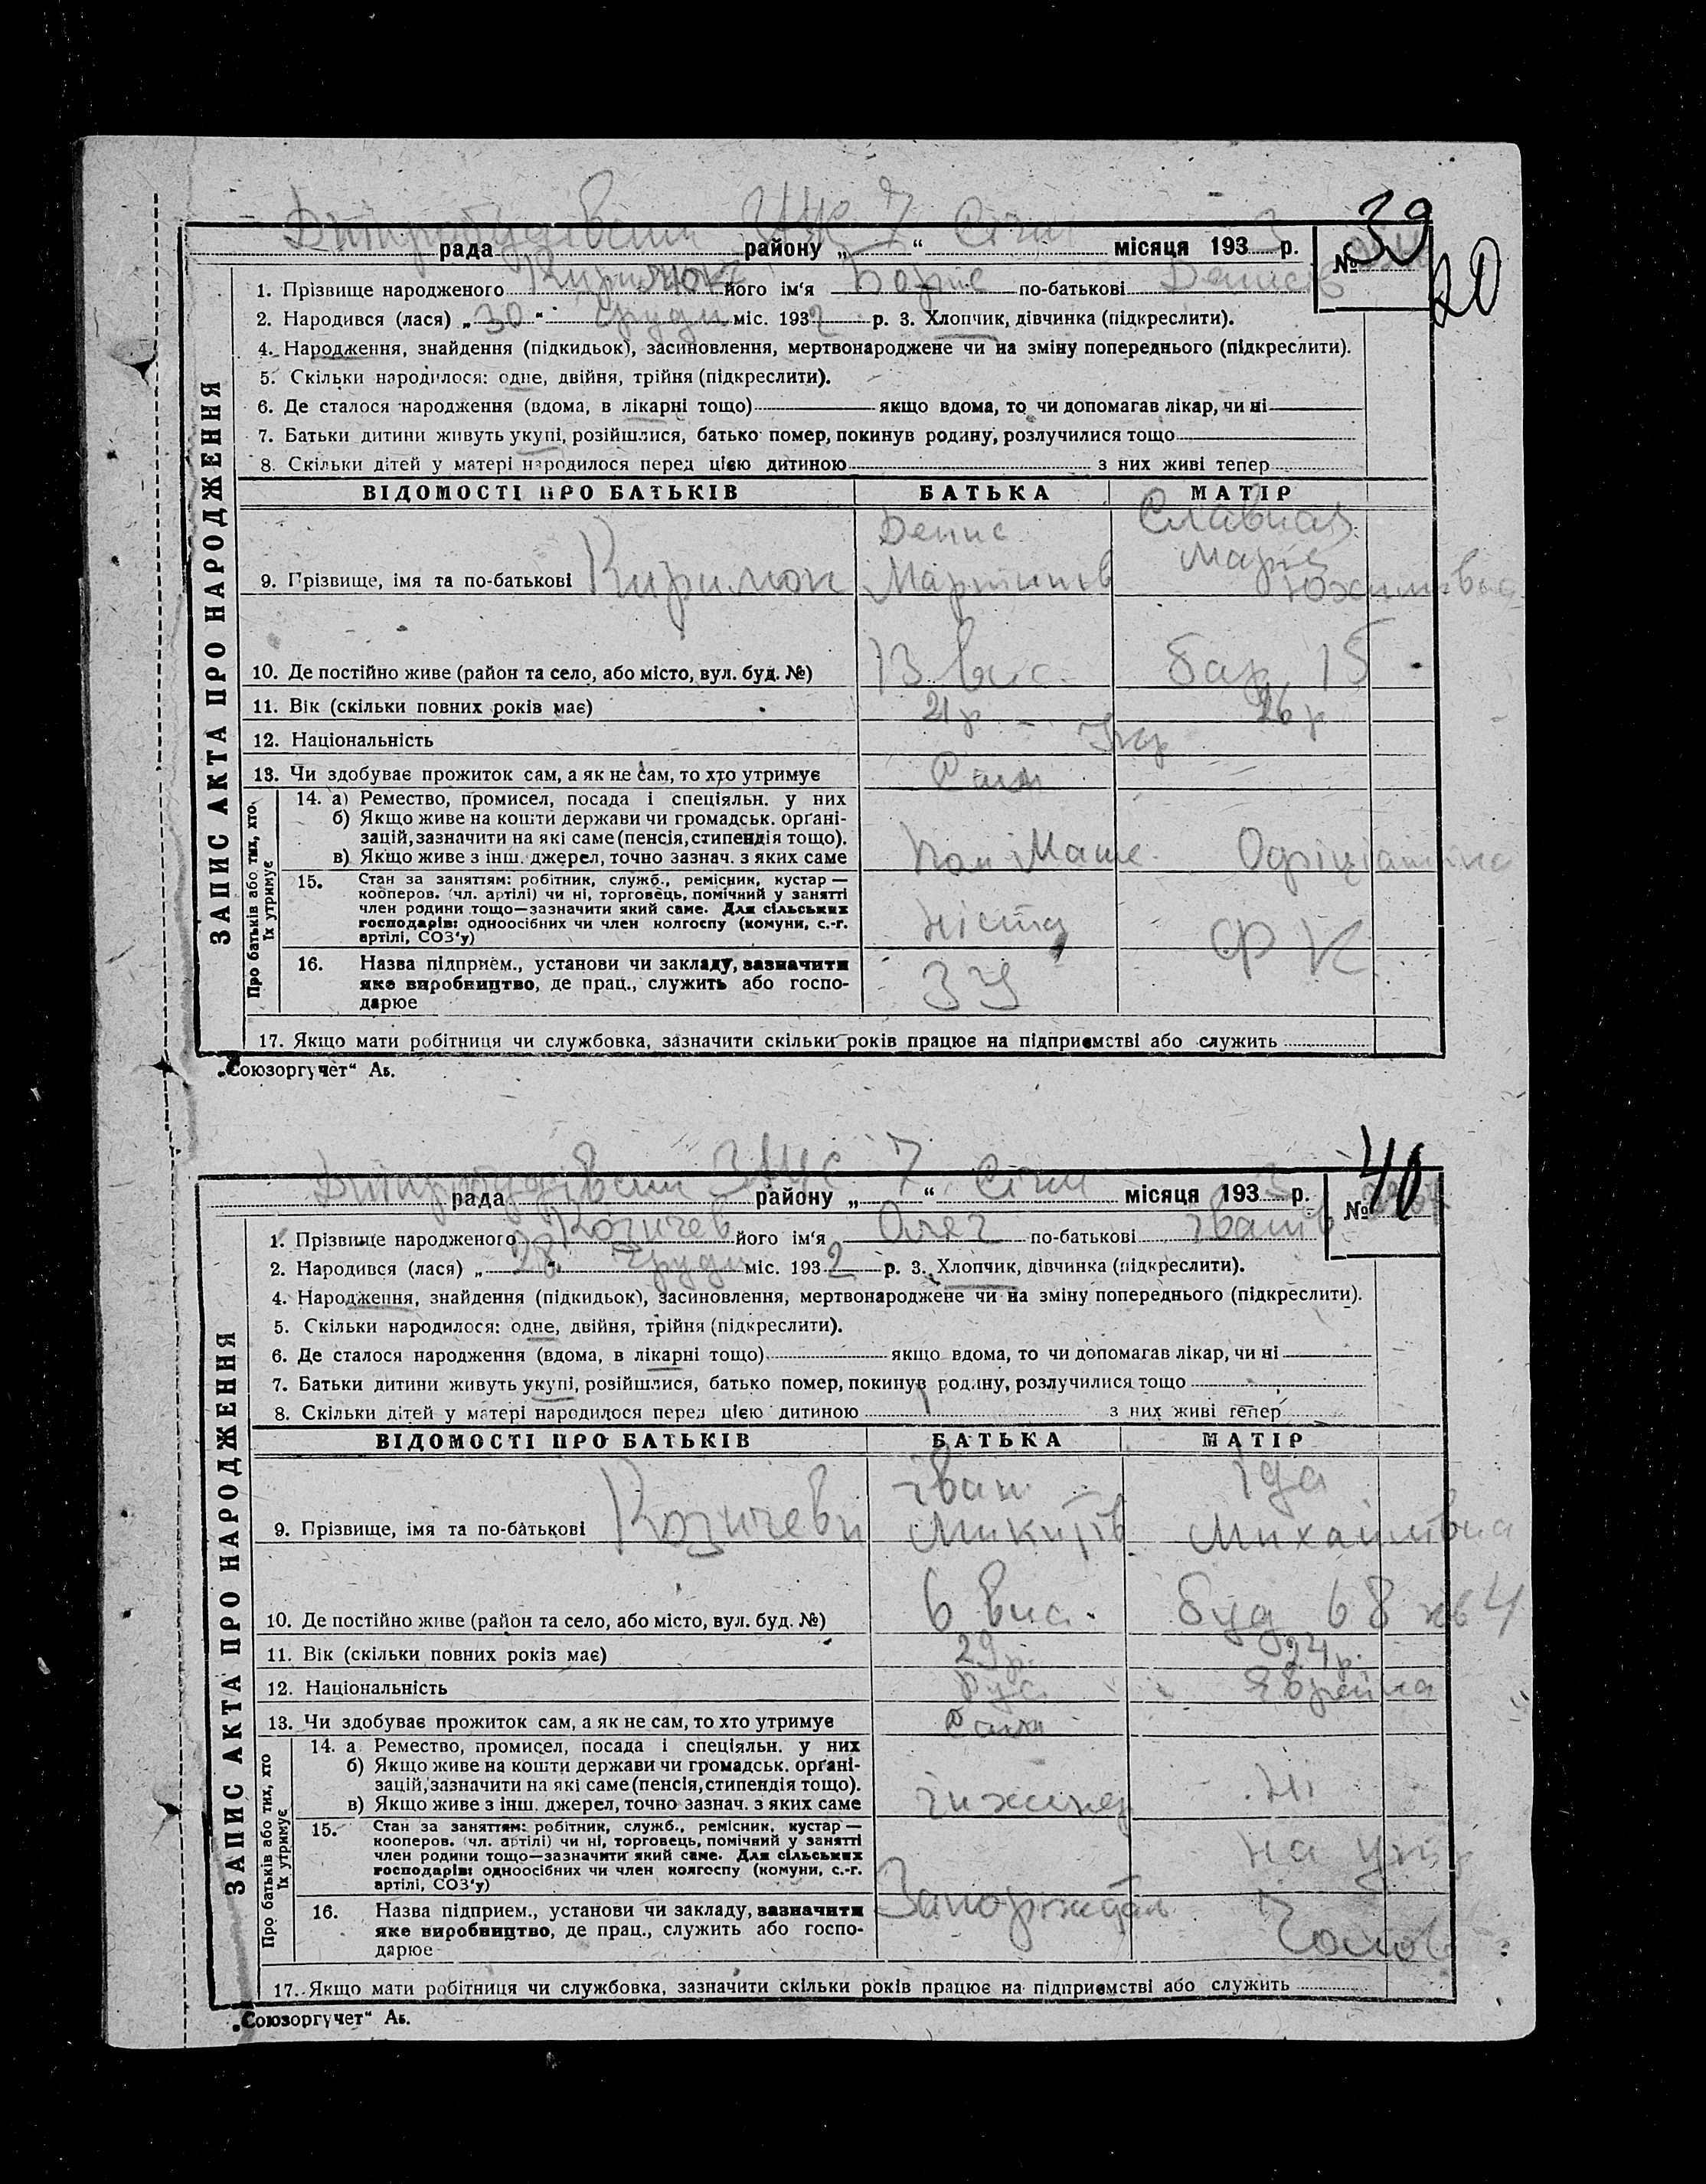 39
20
ЗАПИС АКТА ПРО НАРОДЖЕННЯ
Дніпробудівськ ЗАГС 7 Січн 3
рада району „ “ місяця 193 р. №
1. Прізвище народженого його ім'я Борис по-батькові Денисів
2. Народився (лася) „ 30 “ Грудн міс. 1932 р. 3. Хлопчик, дівчинка (підкреслити).
4. Народження, знайдення (підкидьок), засиновлення, мертвонароджене чи на зміну попереднього (підкреслити).
5. Скільки народилося: одне, двійня, трійня (підкреслити).
6. Де сталося народження (вдома, в лікарні тощо) якщо вдома, то чи допомагав лікар, чи ні
7. Батьки дитини живуть укупі, розійшлися, батько помер, покинув родину, розлучилися тощо
8. Скільки дітей у матері народилося перед цією дитиною з них живі тепер
ВІДОМОСТІ ПРО БАТЬКІВ БАТЬКА МАТІР
Денис Славная
Марія
9. Прізвище, імя та по-батькові Мартинів Юхимівна
10. Де постійно живе (район та село, або місто, вул. буд. №) 13 вис. бар 15
11. Вік (скільки повних років має) 21 р 26 р
12. Національність Укр
13. Чи здобуває прожиток сам, а як не сам, то хто утримує Сам
Про батьків або тих, хто їх утримує
14. а) Ремество, промисел, посада і спеціяльн. у них
б) Якщо живе на кошти держави чи громадськ. орґані-
зацій, зазначити на які саме (пенсія, стипендія тощо).
в) Якщо живе з інш. джерел, точно зазнач. з яких саме Пом Маши Офіціантка
15. Стан за заняттям: робітник, служб., ремісник, кустар —
кооперов. (чл. артілі) чи ні, торговець, помічний у занятті
член родини тощо—зазначити який саме. Для сільських
господарів: одноосібних чи член колгоспу (комуни, с.-г.
артілі, СОЗ'у) ніста ФК
16. Назва підприєм., установи чи закладу, зазначити
яке виробництво, де прац., служить або госпо-
дарює ЗУ
17. Якщо мати робітниця чи службовка, зазначити скільки років працює на підприємстві або служить
„Союзоргучет“ Аб.
40
ЗАПИС АКТА ПРО НАРОДЖЕННЯ
Дніпробудівськ ЗАГС 7 Січн 3
рада району „ “ місяця 193 р. №
1. Прізвище народженого Козичев його ім'я Олег по-батькові Іванів
2. Народився (лася) „ 28 “ Грудн міс. 1932 р. 3. Хлопчик, дівчинка (підкреслити).
4. Народження, знайдення (підкидьок), засиновлення, мертвонароджене чи на зміну попереднього (підкреслити).
5. Скільки народилося: одне, двійня, трійня (підкреслити).
6. Де сталося народження (вдома, в лікарні тощо) якщо вдома, то чи допомагав лікар, чи ні
7. Батьки дитини живуть укупі, розійшлися, батько помер, покинув родину, розлучилися тощо
8. Скільки дітей у матері народилося перед цією дитиною з них живі тепер
ВІДОМОСТІ ПРО БАТЬКІВ БАТЬКА МАТІР
Іван Іда
9. Прізвище, імя та по-батькові Козичеви Микитів Михайлівна
10. Де постійно живе (район та село, або місто, вул. буд. №) 6 вис. буд 68 кв 4
11. Вік (скільки повних років має) 29 р. 24 р.
12. Національність Рус. Яврейка
13. Чи здобуває прожиток сам, а як не сам, то хто утримує Сам
Про батьків або тих, хто їх утримує
14. а Ремество, промисел, посада і спеціяльн. у них
б) Якщо живе на кошти держави чи громадськ. орґані-
зацій, зазначити на які саме (пенсія, стипендія тощо).
в) Якщо живе з інш. джерел, точно зазнач. з яких саме інженер Ні
15. Стан за заняттям: робітник, служб., ремісник, кустар —
кооперов. (чл. артілі) чи ні, торговець, помічний у занятті
член родини тощо—зазначити який саме. Для сільських
господарів: одноосібних чи член колгоспу (комуни, с.-г.
артілі, СОЗ'у) на утр
16. Назва підприєм., установи чи закладу, зазначити
яке виробництво, де прац., служить або госпо-
дарює Запоріжсталь
17. Якщо мати робітниця чи службовка, зазначити скільки років працює на підприємстві або служить
„Союзоргучет“ Аб.